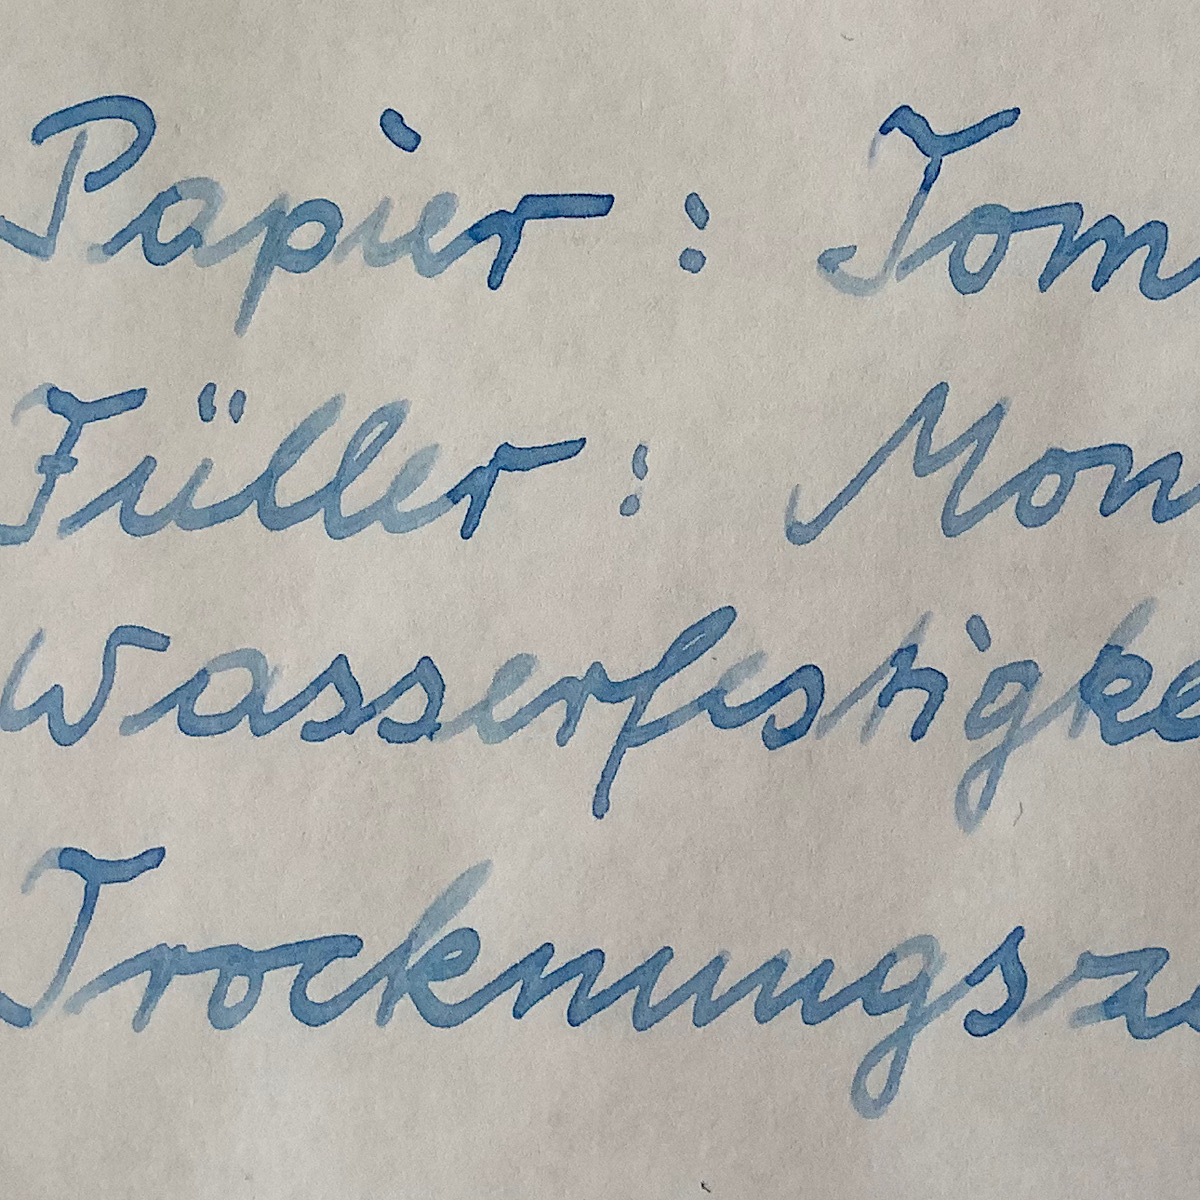 Papier : Tom
Füller : Mon
Wasserfestigke
Trocknungsze